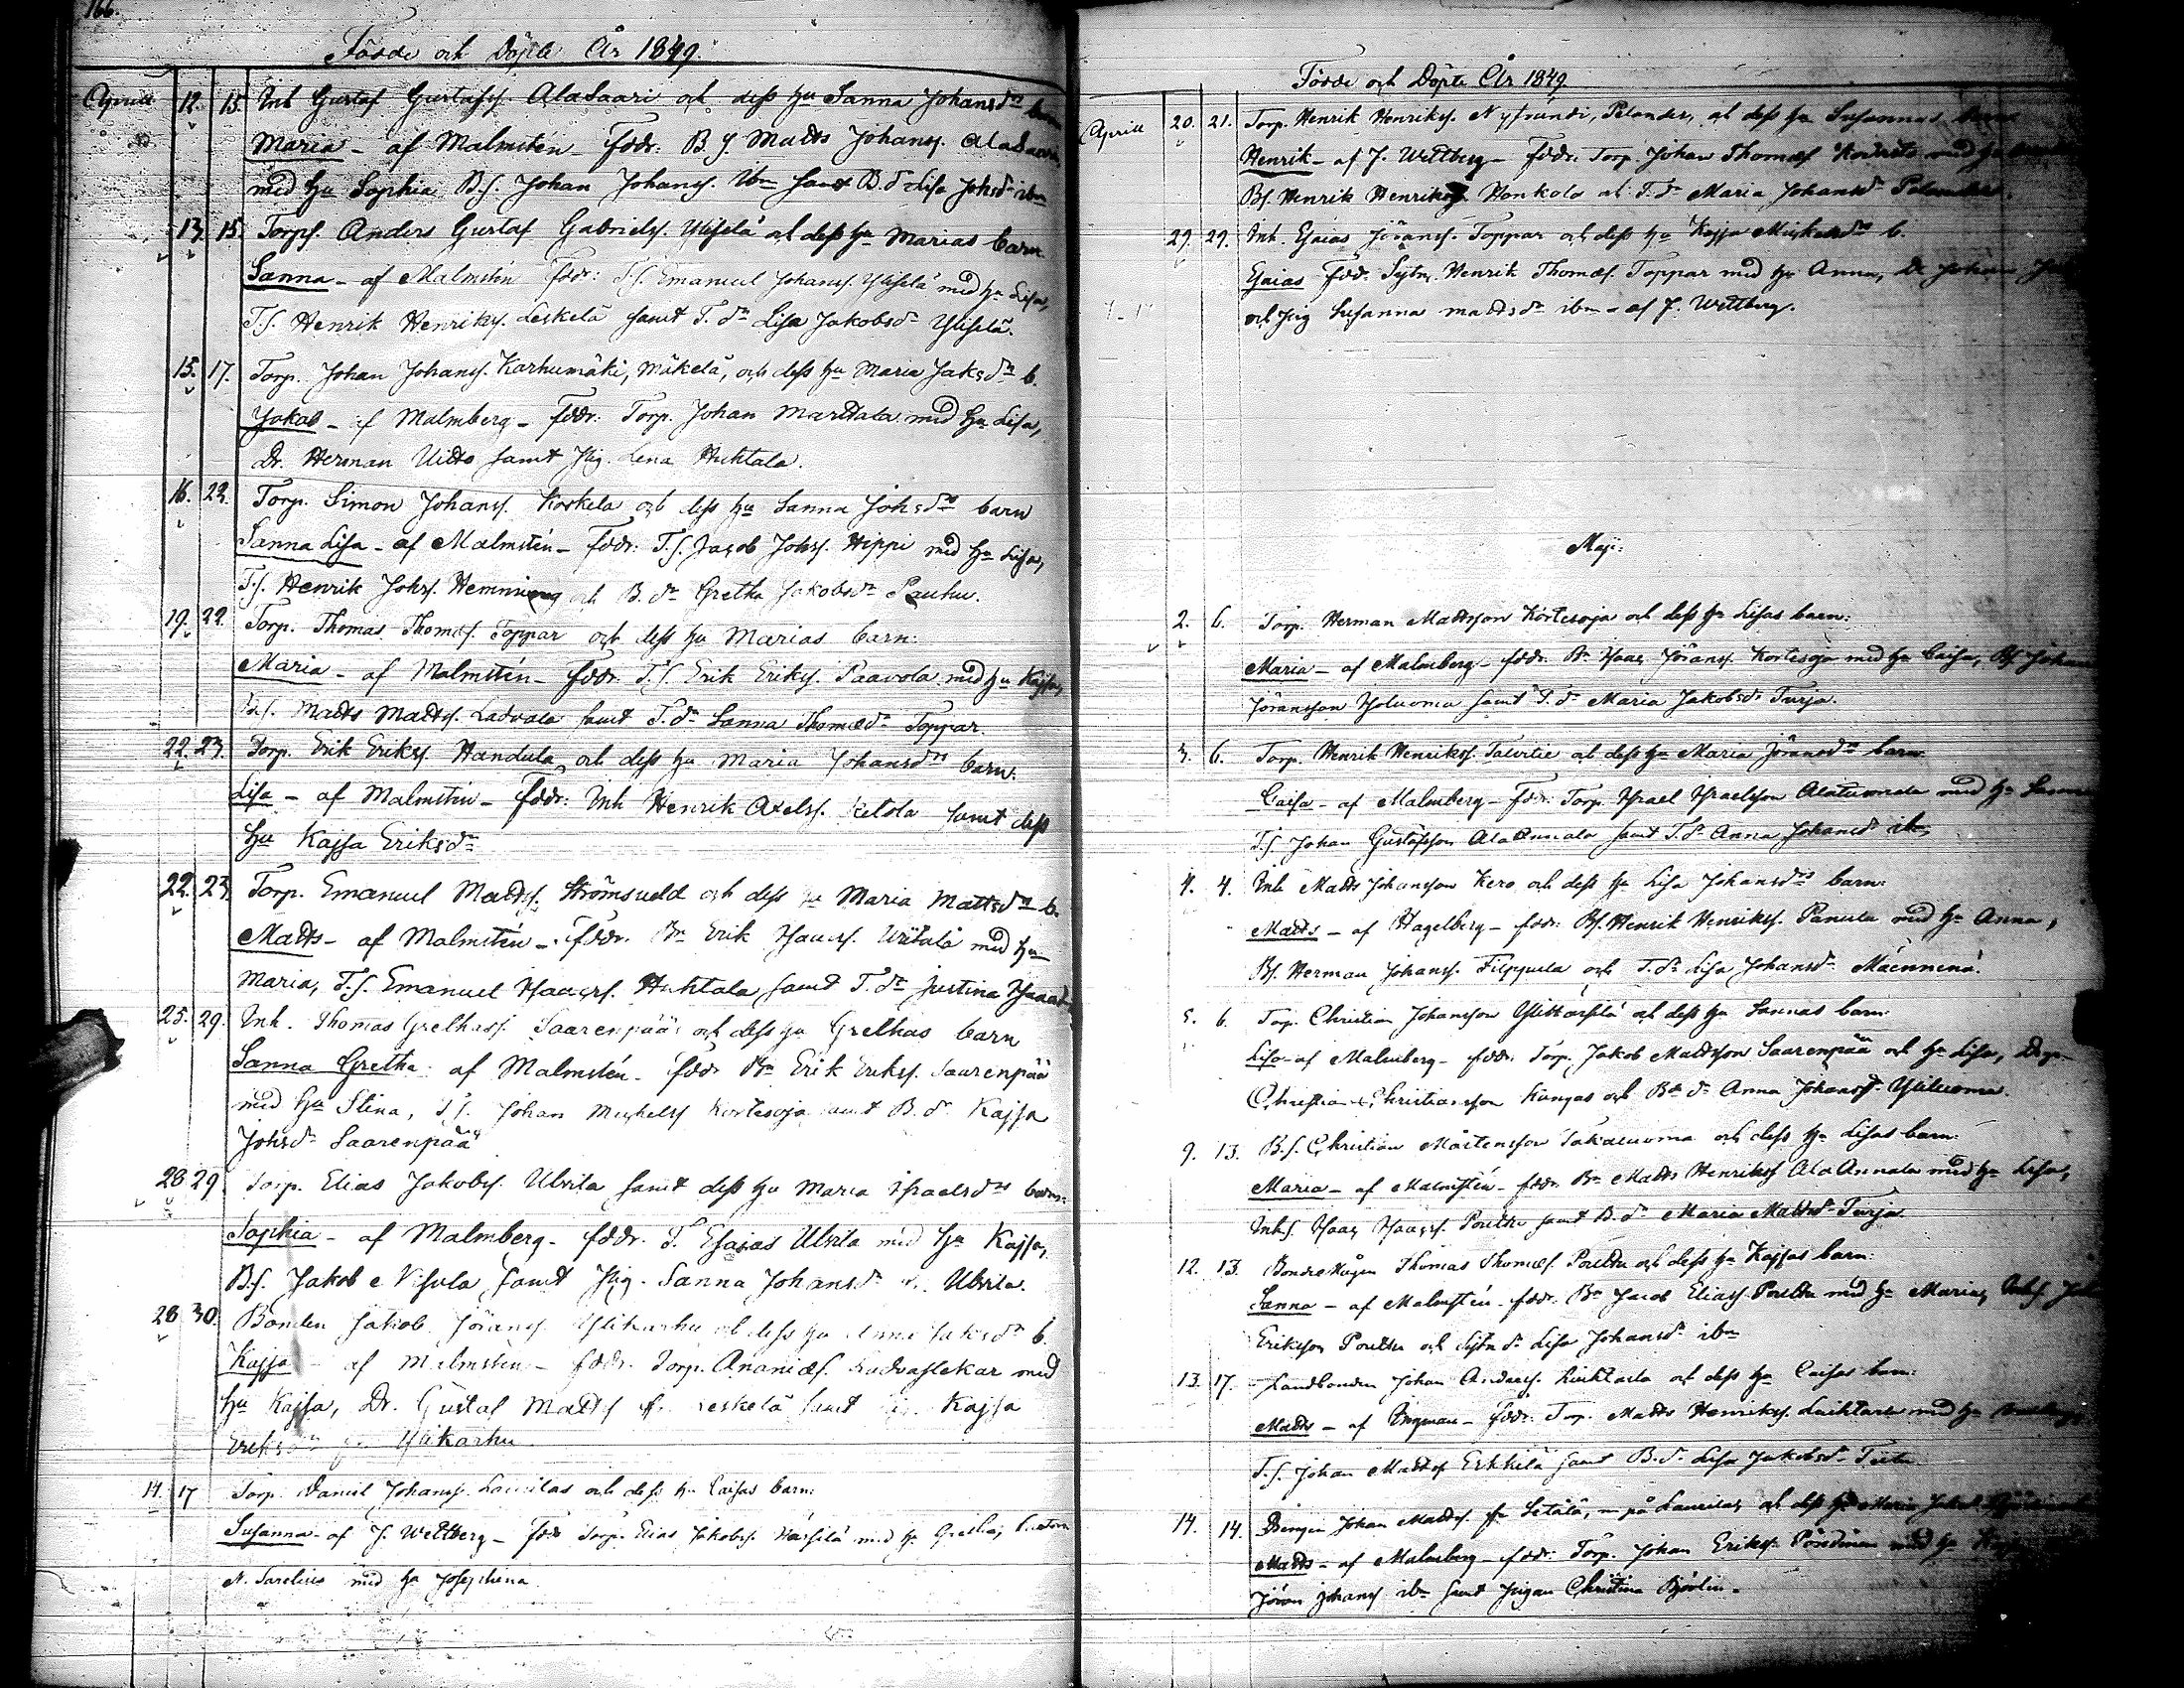 166.
Födde och Döpte År 1849.
Aprill 12. 15. Inh Gustaf Gustafss. AlaSaari och dess hu Sanna Johansdrs barn
Maria - af Malmstén - Fddr: B.S. Matts Johanss. AlaSaari
med hu Sophia B.S. Johan Johanss. ibm samt B.dr Lisa Johsdr ibm
13. 15. Torps. Anders Gustaf Gabrielss. Yliselä och dess hu Marias barn
Sanna - af Malmstén Fddr: T.S. Emanuel Johanss. Yliselä med hu Lisa,
T.S. Henrik Henrikss. Leskelä samt T.dr Lisa Jakobsdr Yliselä.
15. 17. Torp. Johan Johanss. Karhumäki, Mäkelä, och dess hu Maria Jaksdrs b.
Jakob - af Malmberg - Fddr: Torp. Johan Marttala med hu Lisa,
Dr. Herman Uitto samt Pig. Lena Huhtala.
16. 22. Torp. Simon Johanss. Korkela och dess hu Sanna Johsdrs barn
Sanna Lisa - af Malmstén - Fddr: T.S. Jacob Johss. Hippi med hu Lisa,
T.S. Henrik Johss. Hemming och B.dr Gretha Jakobsdr Pauhu.
19. 22. Torp. Thomas Thomæs. Toppar och dess hu Marias barn:
Maria - af Malmstén - Fddr: T.S. Erik Erikss. Paavola med hu Kajsa,
B.S. Matts Mattss. Ladvala samt T.dr Sanna Thomædr Toppar.
22. 23. Torp. Erik Erikss. Handula och dess hu Maria Johansdrs barn:
Lisa - af Malmstén - Fddr: Inh Henrik Axelss. Ketola samt dess
hu Kajsa Eriksdr
22. 23. Torp. Emanuel Mattss. Strömsveld och dess hu Maria Mattsdrs b.
Matts - af Malmstén - Fddr. Bn Erik Isaacss. Uitala med hu
Maria, T.S. Emanuel Isaacss. Huhtala samt T.dr Justina
25. 29. Inh. Thomas Grelhass. Saarenpää och dess hu Grethas barn
Sanna Gretha: af Malmstén - Fddr Bn Erik Erikss. Saarenpää
med hu Stina, T.S. Johan Michelss Kortesoja samt B.dr Kajsa
Johsdr Saarenpää
28 29 Torp. Elias Jakobss. Ulvila samt dess hu Maria Israelsdrs barn:
Sophia - af Malmberg - Fddr. T. Esaias Ulvila med hu Kajsa,
B.S. Jakob Nisula samt Pig. Sanna Johansdr Ulvila.
28 30. Bonden Jakob Jöranss. Ylikarhu och dess hu Anna Jaksdrs b.
Kajsa - af Malmstén - Fddr. Torp. Ananiæs. Ladvaslekar med
hu Kajsa, Dr. Gustaf Mattss fr. Leskelä samt Kajsa
Eriksdr fr Ylikarhu
14. 17 Torp. Daniel Johanss. Laurilas och dess hu Caisas barn:
Susanna - af J. Wettberg - Fddr Torp. Elias Jakobss. Harsilä med hu
N. Sarelius med hu Josephina
Födde och Döpte År 1849.
Aprill 20. 21. Torp. Henrik Henrikss. Nyfrundi, Pelander, och dess hu Susannas barn
Henrik - af J. Wettberg - Fddr. Torp. Johan Thomæs med hu
Bs. Henrik Henriksson Honkola och T.dr Maria Johansdr
29. 29. Inh. Esaias Jöranss. Toppar och dess hu Kajsa Mickelsdrs b.
Esaias Fddr. Sytn. Henrik Thomæs. Toppar med hu Anna, Dr. Johan
och Pig Susanna Mattsdr ibm - af J. Wettberg.
Maji:
2. 6. Torp. Herman Mattsson Kortesoja och dess hu Lisas barn:
Maria - af Malmberg - fddr. Bn Isaac Jöranss. Kortesoja med hu Caisa, Bs Johan
Jöransson Yliluoma samt T.dr Maria Jakobsdr Turja.
3. 6. Torp. Henrik Henrikss. Talvitie och dess hu Maria Jöransdrs barn
Caisa - af Malmberg - Fddr: Torp. Israel Israelsson Alatuomela med hu
T.S. Johan Gustafsson AlaAnnala samt T.dr Anna Johansdr ibm
4. 4. Inh Matts Johansson Kero och dess hu Lisa Johansdrs barn:
Matts - af Hagelberg - fddr: Bs. Henrik Henrikss. Panula med hu Anna,
Bs. Herman Johanss. Filppula och T.dr Lisa Johansdr Mäennenä.
5. 6. Torp. Christian Johansson Ylikarsilä och dess hu Sannas barn:
Lisa - af Malmberg - fddr: Torp. Jakob Mattsson Saarenpää och hu Lisa,
Christian Christiansson Kangas och Bn dr Anna Johansdr Yliluoma.
9. 13. B.S. Christian Mårtensson Takaluoma och dess hu Lisas barn:
Maria - af Malmstén - fddr. Bn Matts Henrikss AlaAnnala med hu Lisa,
Inhs. Isaac Isaacss. Poutttu samt B.dr Maria Mattsdr Turja
12. 13. Bondemågen Thomas Thomæs. Pouttu och dess hu Kajsas barn:
Sanna - af Malmstén - fddr. Bn Jacob Eliass. Pouttu med hu Maria, Inhs.
Eriksson Pouttu och Sytn dr Lisa Johansdr ibm
13. 17. Landbonden Johan Anderss. Luhtala och dess hu Caisas barn:
Matts - af Ingman - Fddr: Torp. Matts Henrikss. Luhtala med hu
T.S. Johan Mattss Erkkilä samt B.dr Lisa Jakobsdr
14. 14. Drengen Johan Mattss. fr Setälä, på Laurilas, och dess hu Maria
Matts - af Malmberg - fddr. Torp. Johan Erikss. med hu
Jöran Johanss ibm samt Pigan Christina Björlin.